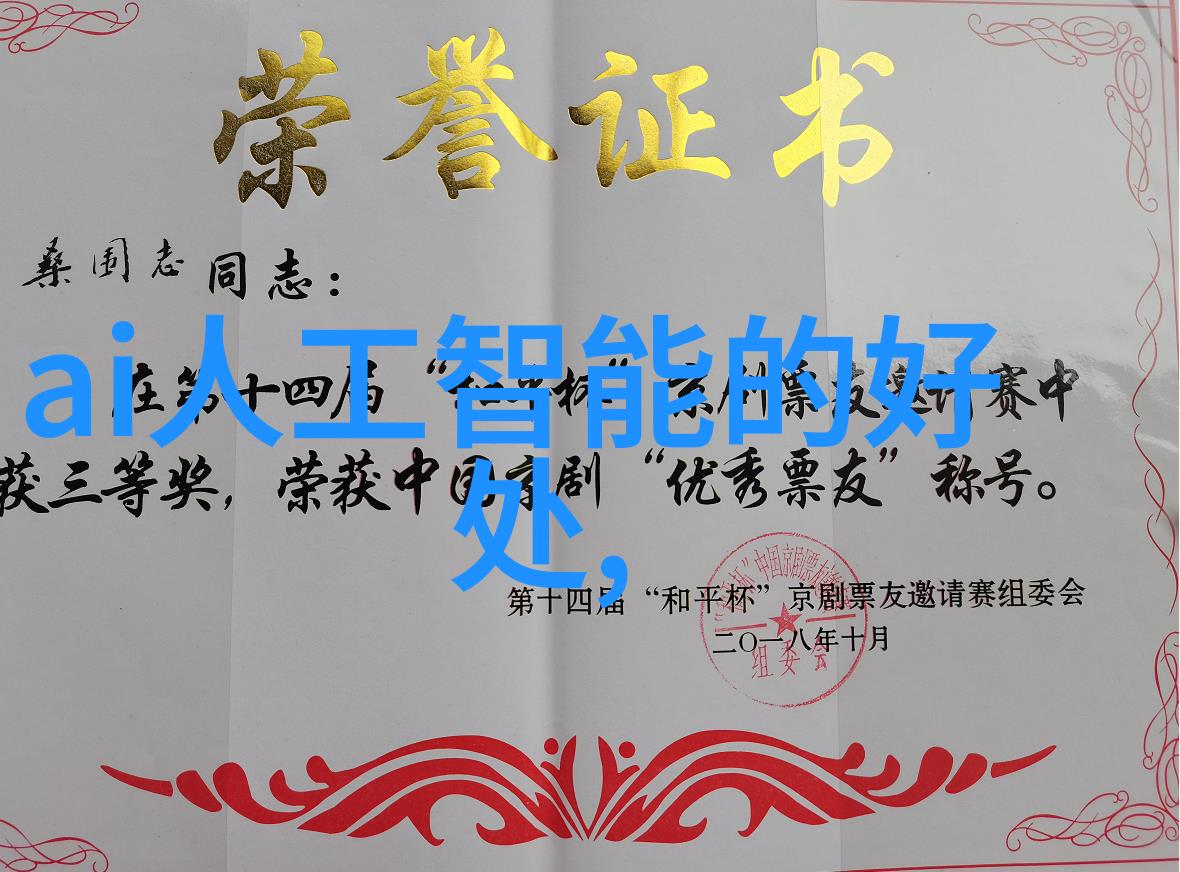 荣誉证书
桑国志同志：
ai人工智能的好
处,
在第十四届“和平杯”京剧票友邀请赛中
获三等奖，荣获中国京剧“优秀票友”称号。
第十四届“和平杯”京剧票友邀请赛组委会
二〇一八年十月
组委会